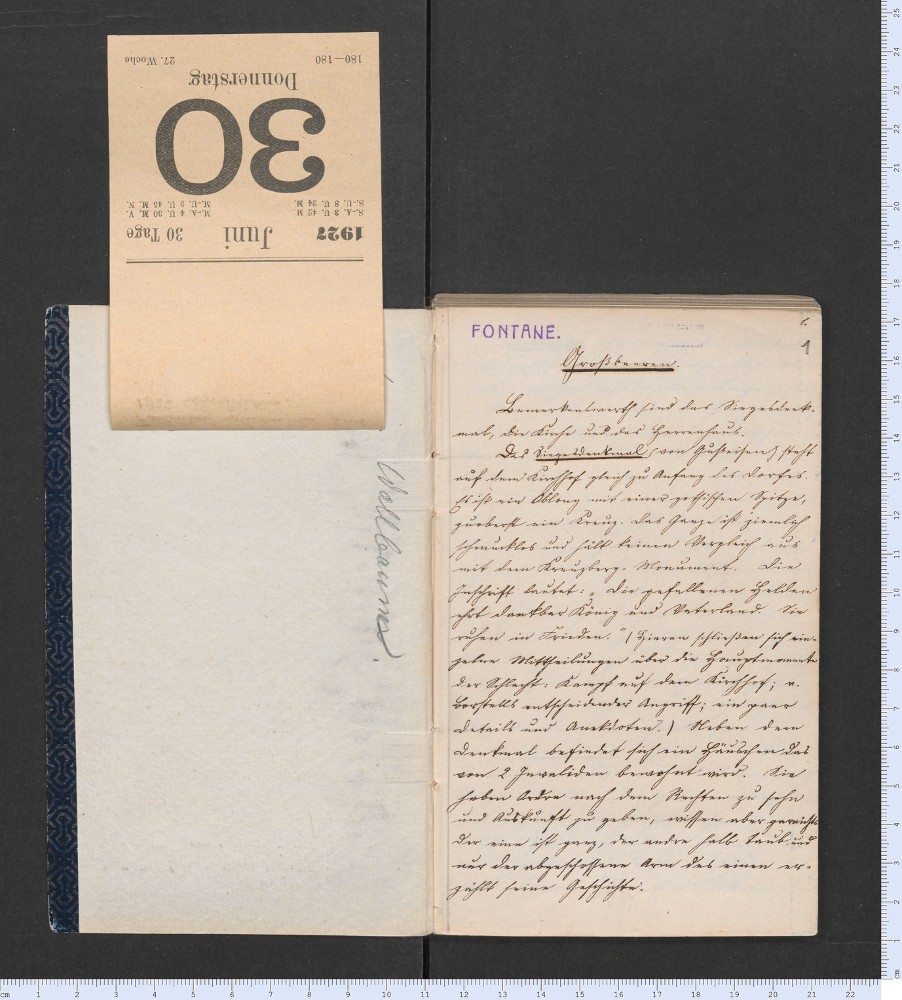 180—180 27. Woche
Donnerstag
30
S.-A. 3 U. 42 M M.-A. 4 U. 30 M. V.
S.-U. 8 U. 24 M. M.-U. 9 U. 45 M. N.
1927 Juni 30 Tage
Wallbaums.
FONTANE.
1.
1
Großbeeren.
Bemerkenswerth sind das Siegesdenk-
mal, die Kirche und das Herrenhaus.
Das Siegesdenkmal (von Gußeisen) steht
auf dem Kirchhof gleich zu Anfang des Dorfes.
Es ist ein Oblong mit einer gothischen Spitze,
zuoberst ein Kreuz. Das Ganze ist ziemlich
schmucklos und hält keinen Vergleich aus
mit dem Kreuzberg-Monument. Die
Inschrift lautet: „Die gefallenen Helden
ehrt dankbar König und Vaterland. Sie
ruhen in Frieden." (Hieran schließen sich ein-
zelne Mittheilungen über die Hauptmomente
der Schlacht: Kampf auf dem Kirchhof; v.
Borstells entscheidender Angriff; ein paar
Details und Anekdoten.) Neben dem
Denkmal befindet sich ein Häuschen das
von 2 Invaliden bewohnt wird. Sie
haben Ordre nach dem Rechten zu sehn
und Auskunft zu geben, wissen aber gar nichts.
Der eine ist ganz, der andre halb taub und
nur der abgeschossene Arm des einen er-
zählt seine Geschichte.